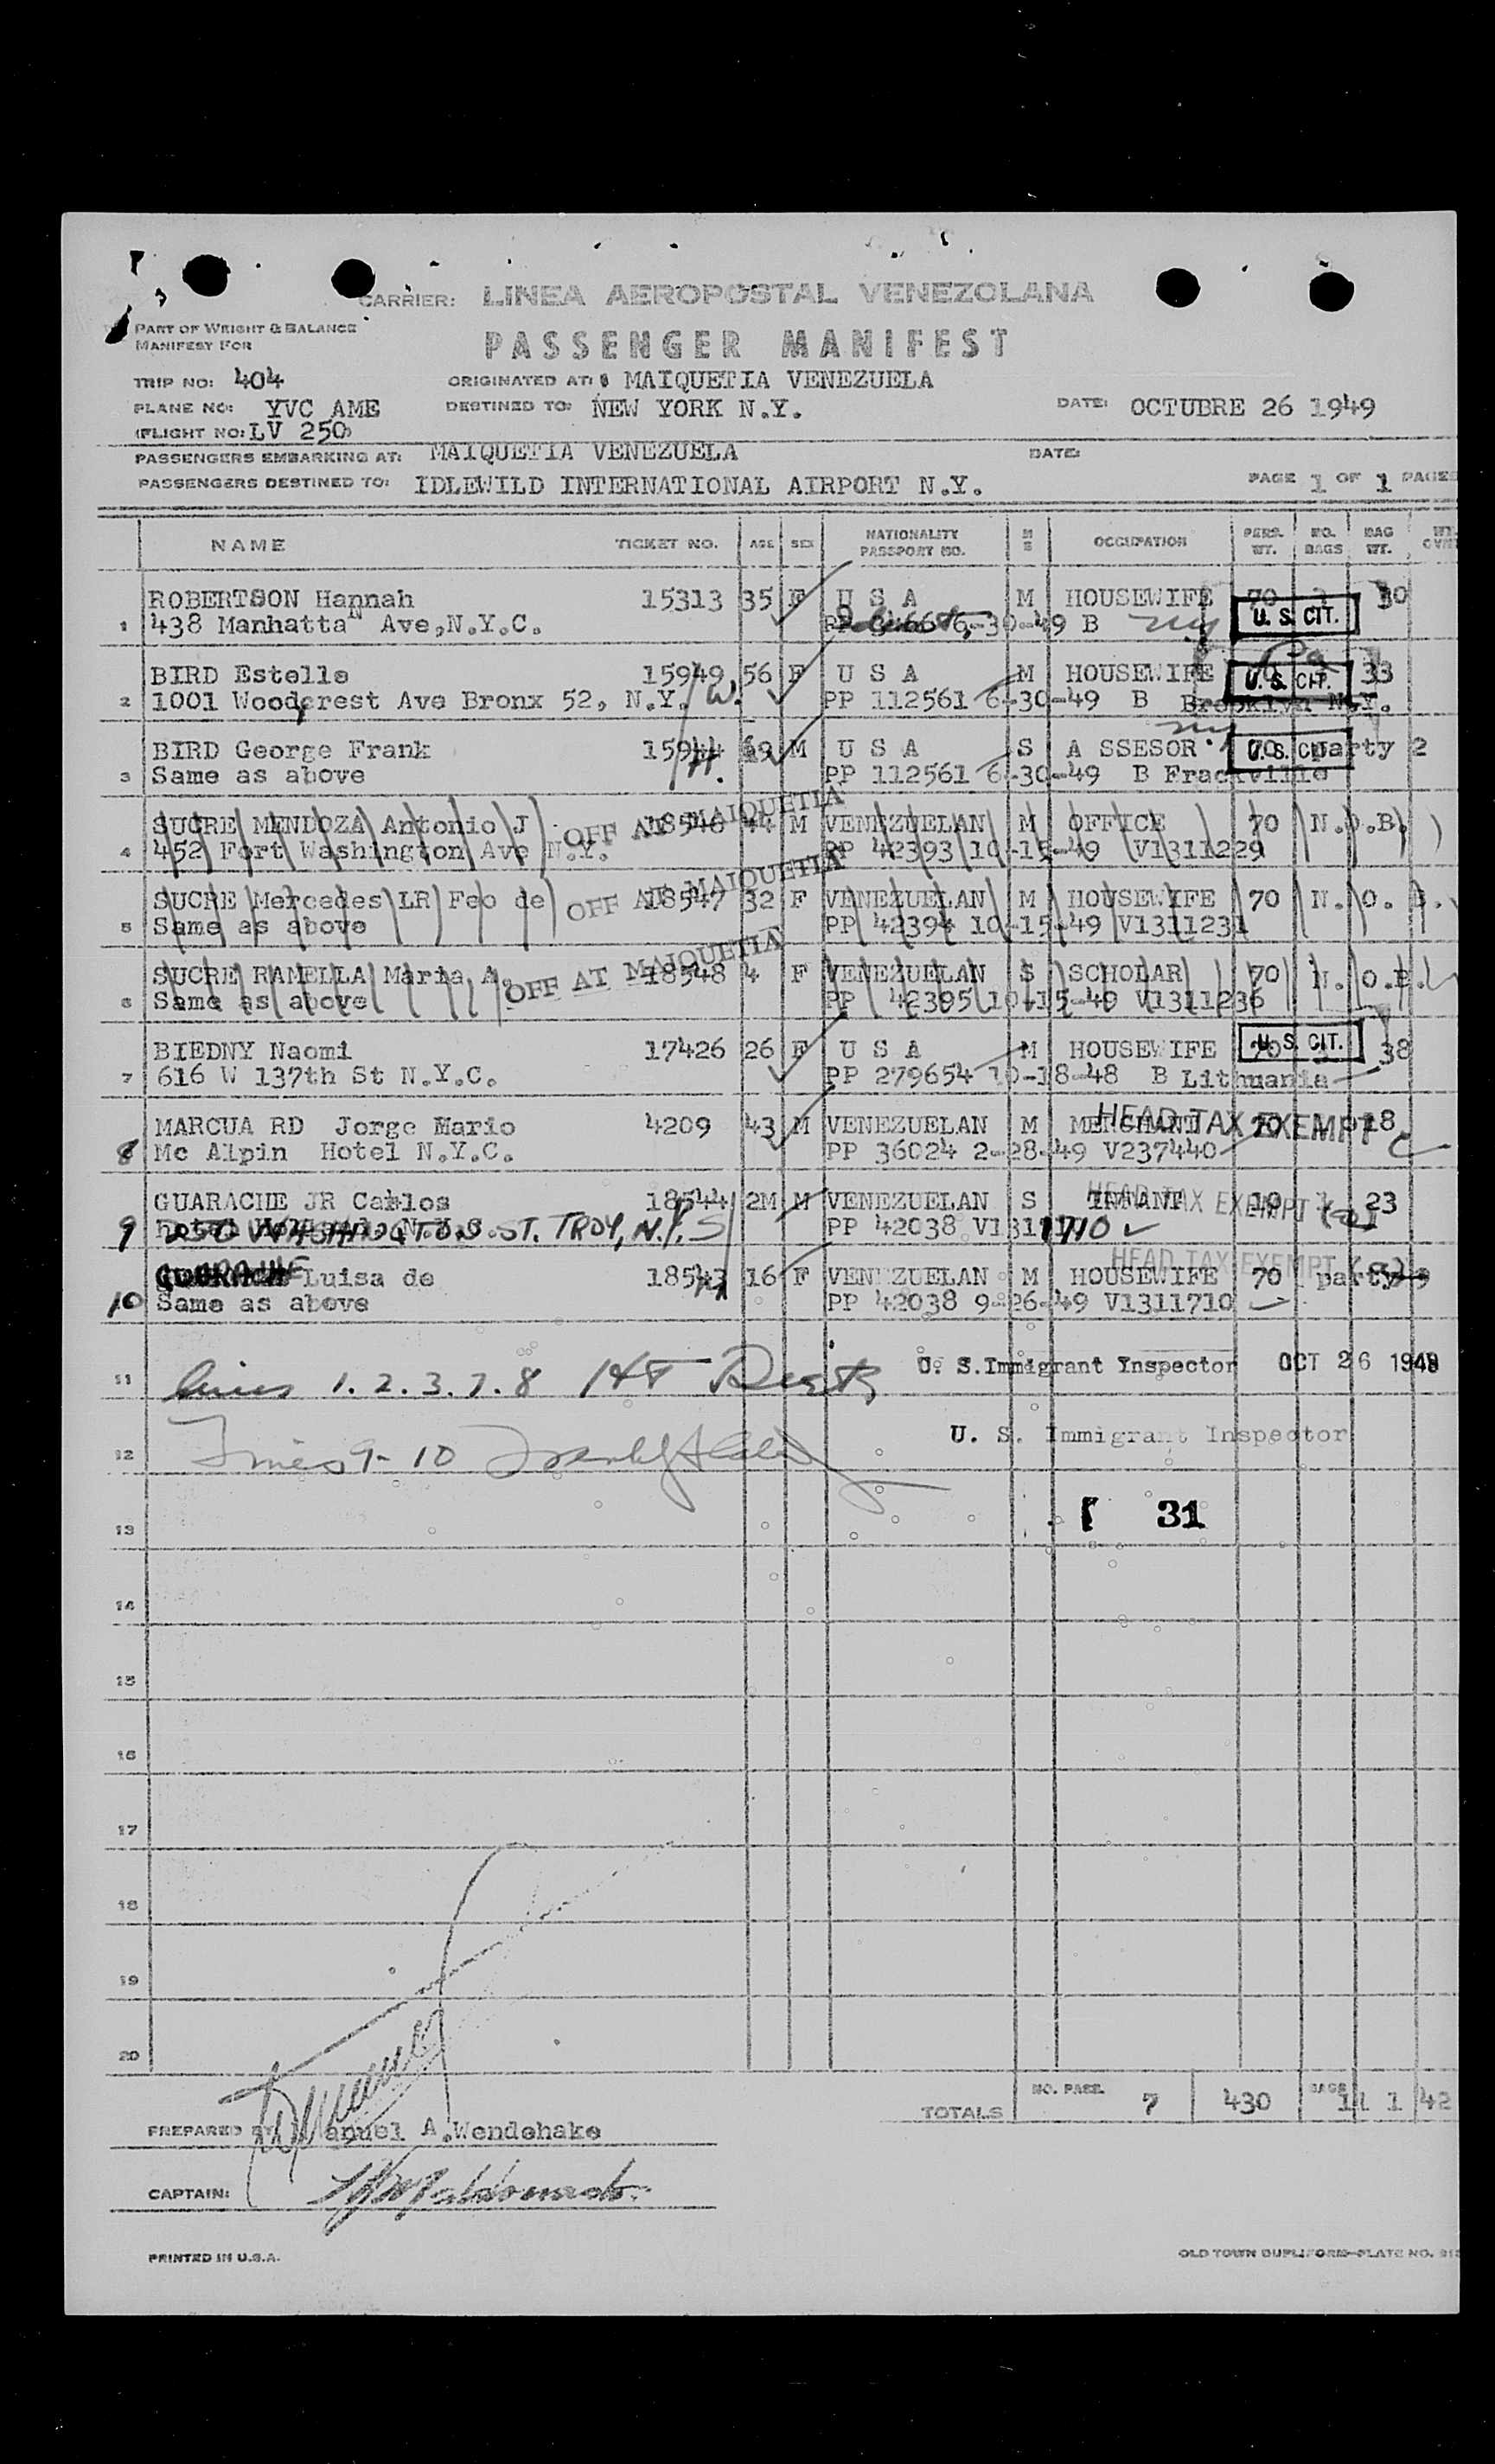 CARRIER: LINEA AEROPOSTAL VENEZOLANA
PART OF WEIGHT & BALANCE
MANIFEST FOR
PASSENGER MANIFEST
TRIP NO: 404
ORIGINATED AT: MAIQUETIA VENEZUELA
PLANE NO: YVC AME
DESTINED TO: NEW YORK N.Y.
DATE: OCTUBRE 26 1949
(FLIGHT NO: LV 250)
PASSENGERS EMBARKING AT: MAIQUETIA VENEZUELA DATE:
PASSENGERS DESTINED TO: IDLEWILD INTERNATIONAL AIRPORT N.Y. PAGE 1 OF 1 PAGES
NAME TICKET NO. AGE SEX NATIONALITY PASSPORT NO. M S OCCUPATION PERS. WT. NO. BAGS BAG WT.
ROBERTSON Hannah 15313 35 F U S A M HOUSEWIFE 70 30
1 438 Manhattan Ave,N.Y.C. 6-30-49 B NY U. S. CIT.
BIRD Estelle 15949 56 F U S A M HOUSEWIFE 33
2 1001 Woodcrest Ave Bronx 52, N.Y. W. PP 112561 6-30-49 B Brooklyn N.Y. U. S. CIT.
BIRD George Frank 15944 M U S A S A SSESOR 70 party 2
3 Same as above H. PP 112561 6-30-49 B Frackville U. S. CIT.
SUCRE MENDOZA Antonio J OFF AT MAIQUETIA 18546 44 M VENEZUELAN M OFFICE 70 N.O.B.
4 452 Fort Washington Ave N.Y. PP 42393 10-15-49 V1311229
SUCRE Mercedes LR Feo de OFF AT MAIQUETIA 18547 32 F VENEZUELAN M HOUSEWIFE 70 N. O. B.
5 Same as above PP 42394 10-15-49 V1311231
SUCRE RAMELLA Maria A. OFF AT MAIQUETIA 18548 4 F VENEZUELAN S SCHOLAR 70 N. O.B.
6 Same as above PP 42395 10-15-49 V1311236
BIEDNY Naomi 17426 26 F U S A M HOUSEWIFE 70 U. S. CIT. 38
7 616 W 137th St N.Y.C. PP 279654 10-18-48 B Lithuania
MARCUA RD Jorge Mario 4209 43 M VENEZUELAN M MERCHANT 70 HEAD TAX EXEMPT 18
8 Mc Alpin Hotel N.Y.C. PP 36024 2-28-49 V237440
GUARACHE JR Carlos 18544 2M M VENEZUELAN S INFANT 10 HEAD TAX EXEMPT 23
9 WASHINGTON ST. TROY, N.Y. PP 42038 V1311710
GUARACHE Luisa de 18543 16 F VENEZUELAN M HOUSEWIFE 70 party HEAD TAX EXEMPT
10 Same as above PP 42038 9-26-49 V1311710
11 Lines 1. 2. 3. 7. 8 U. S. Immigrant Inspector OCT 26 1949
12 Lines 9-10 U. S. Immigrant Inspector
31
13
14
15
16
17
18
19
20
TOTALS NO. PASS. 7 430 BAGS 11 142
PREPARED BY Manuel A. Wendehake
CAPTAIN:
PRINTED IN U.S.A.
OLD TOWN DUPLIFORM—PLATE NO.